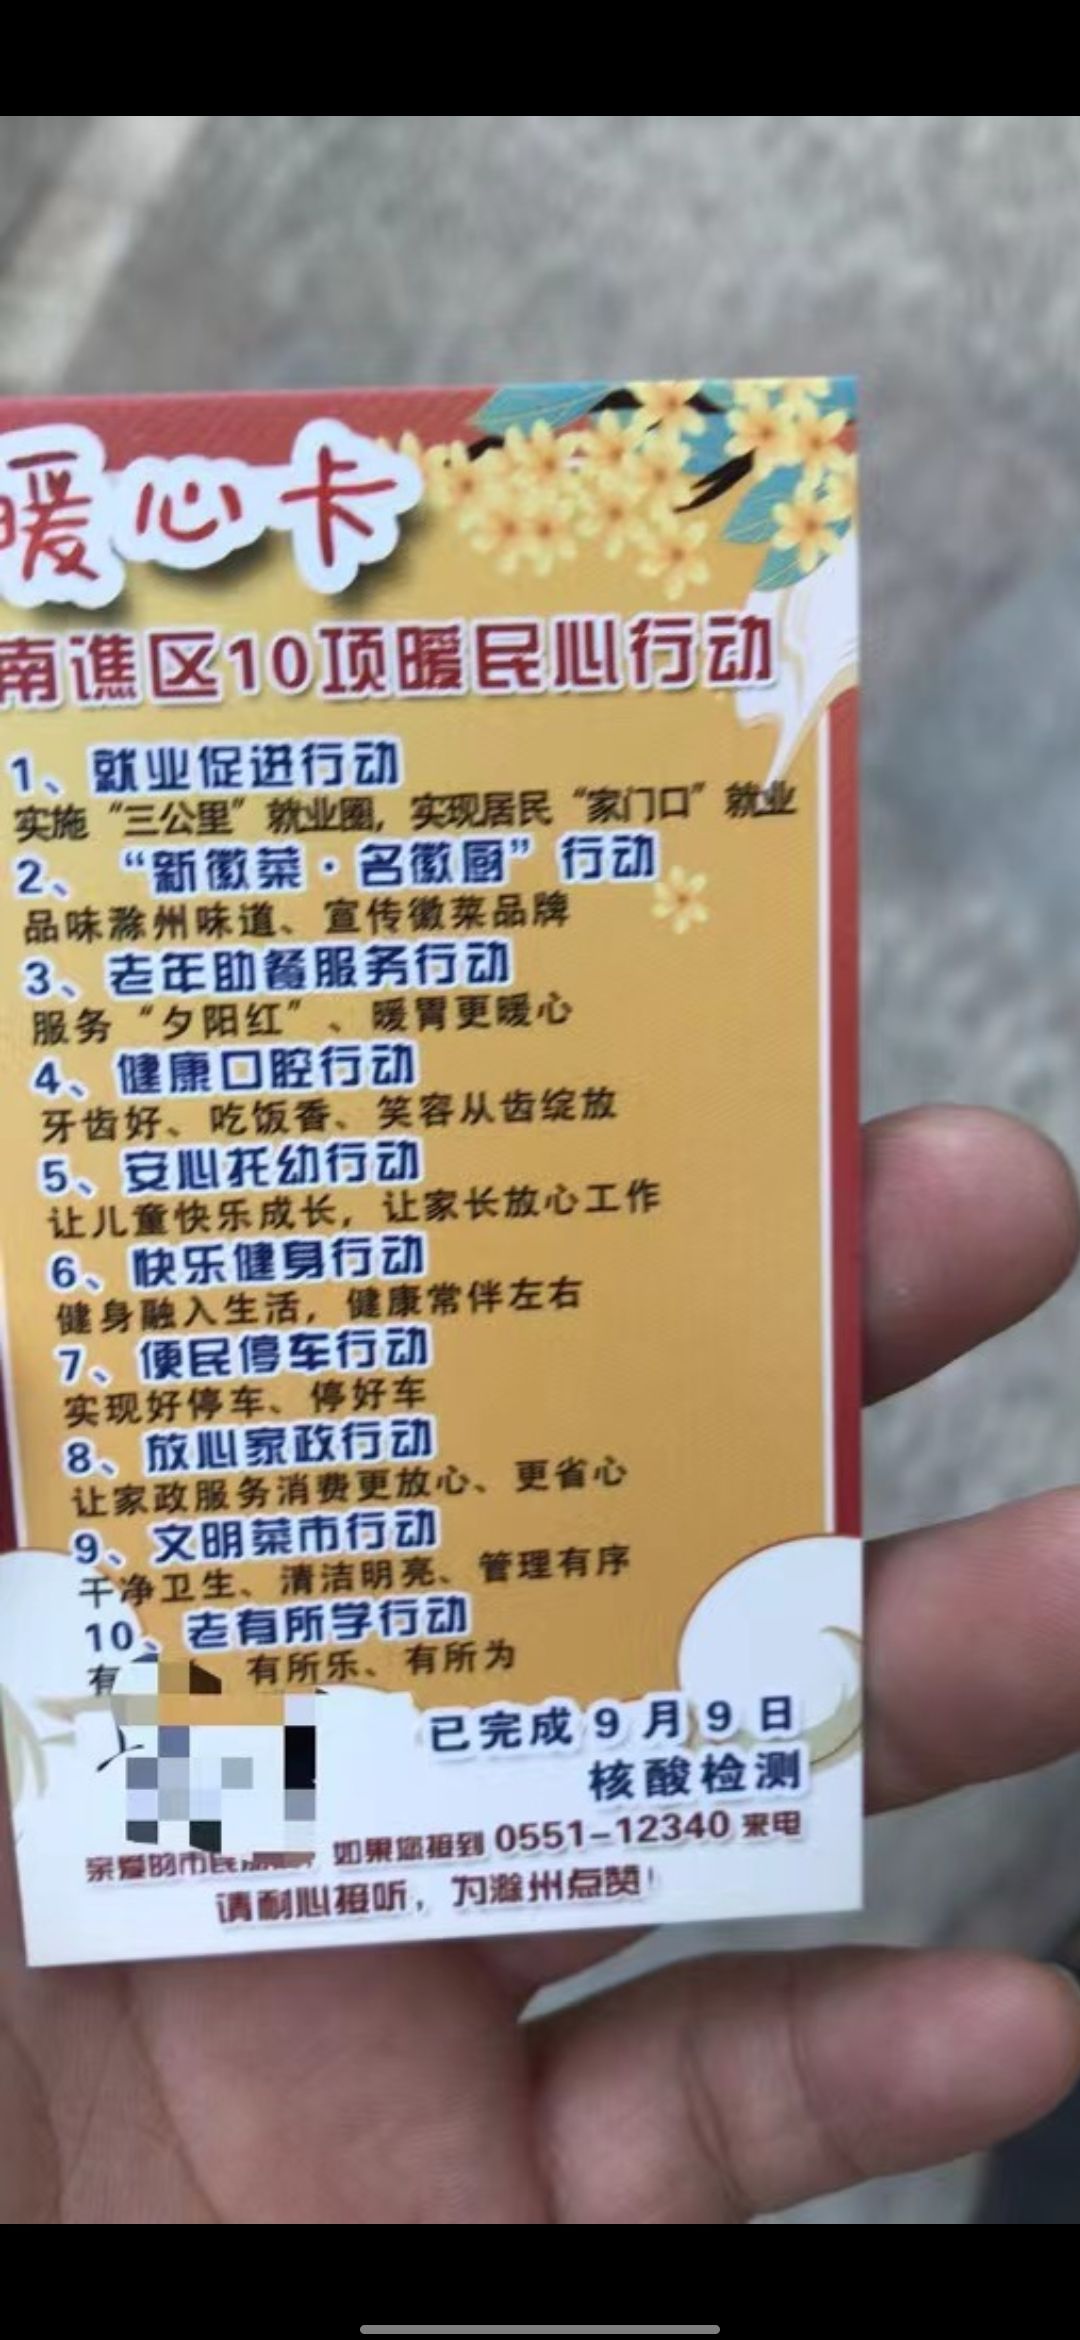 暖心卡
南谯区10项暖民心行动
1、就业促进行动
实施“三公里”就业圈，实现居民“家门口”就业
2、“新徽菜·名徽厨”行动
品味滁州味道、宣传徽菜品牌
3、老年助餐服务行动
服务“夕阳红”、暖胃更暖心
4、健康口腔行动
牙齿好、吃饭香、笑容从齿绽放
5、安心托幼行动
让儿童快乐成长，让家长放心工作
6、快乐健身行动
健身融入生活，健康常伴左右
7、便民停车行动
实现好停车、停好车
8、放心家政行动
让家政服务消费更放心、更省心
9、文明菜市行动
干净卫生、清洁明亮、管理有序
10、老有所学行动
有 、有所乐、有所为
已完成9月9日
核酸检测
亲爱的市民 如果您接到0551-12340来电
请耐心接听，为滁州点赞！